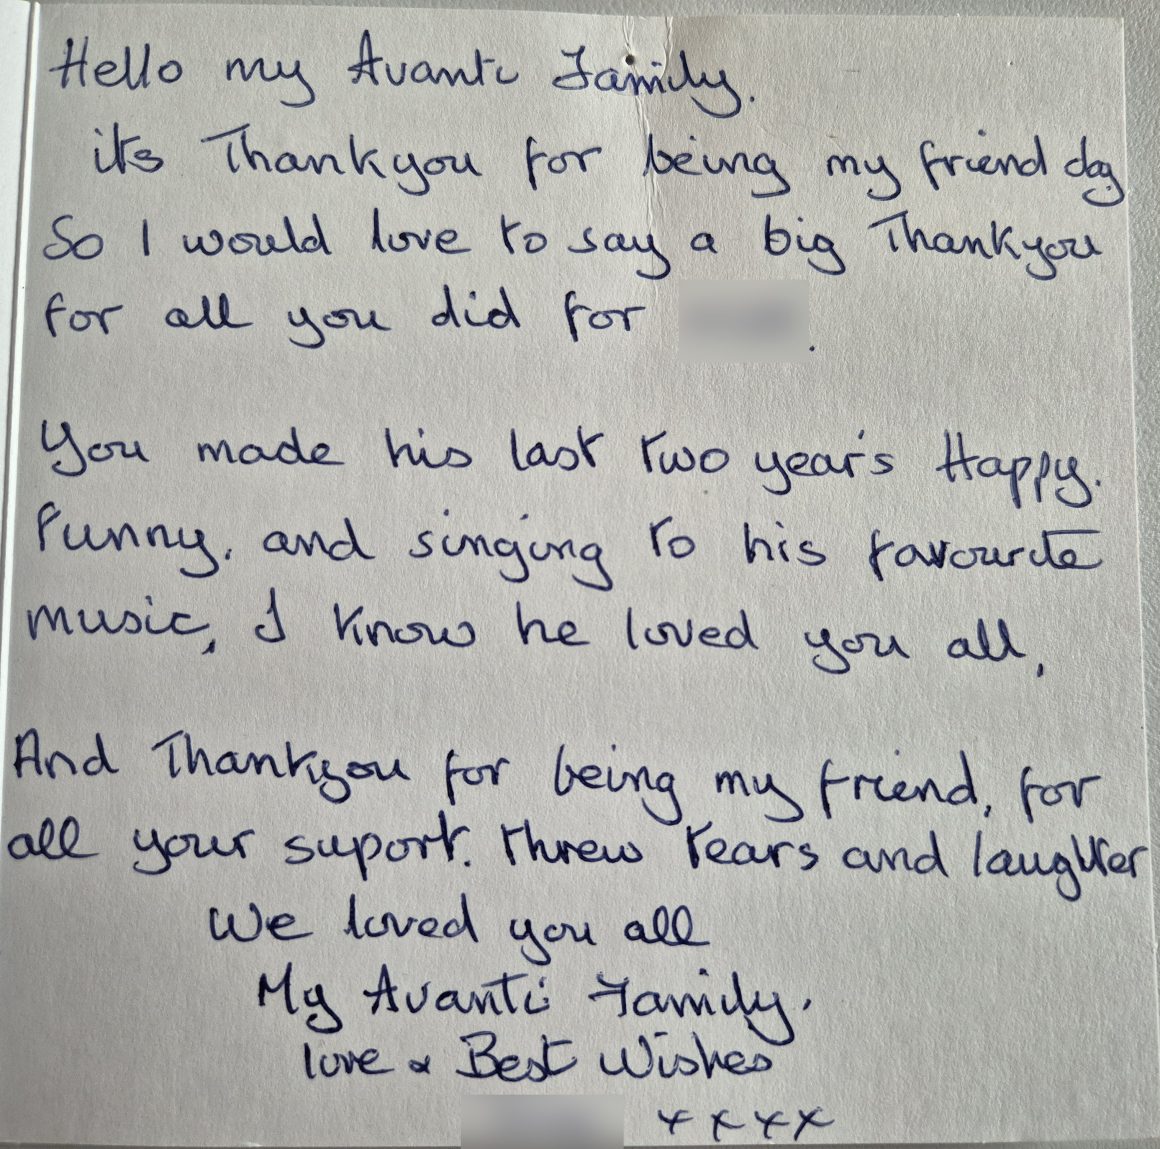 Hello my Avanti Family.
its Thankyou for being my friend day
So I would love to say a big Thankyou
for all you did for .
You made his last two year's Happy.
Funny. and singing to his favourite
music, I know he loved you all,
And Thankyou for being my friend, for
all your suport. threw tears and laughter
We loved you all
My Avanti Family.
love & Best Wishes
xxxx